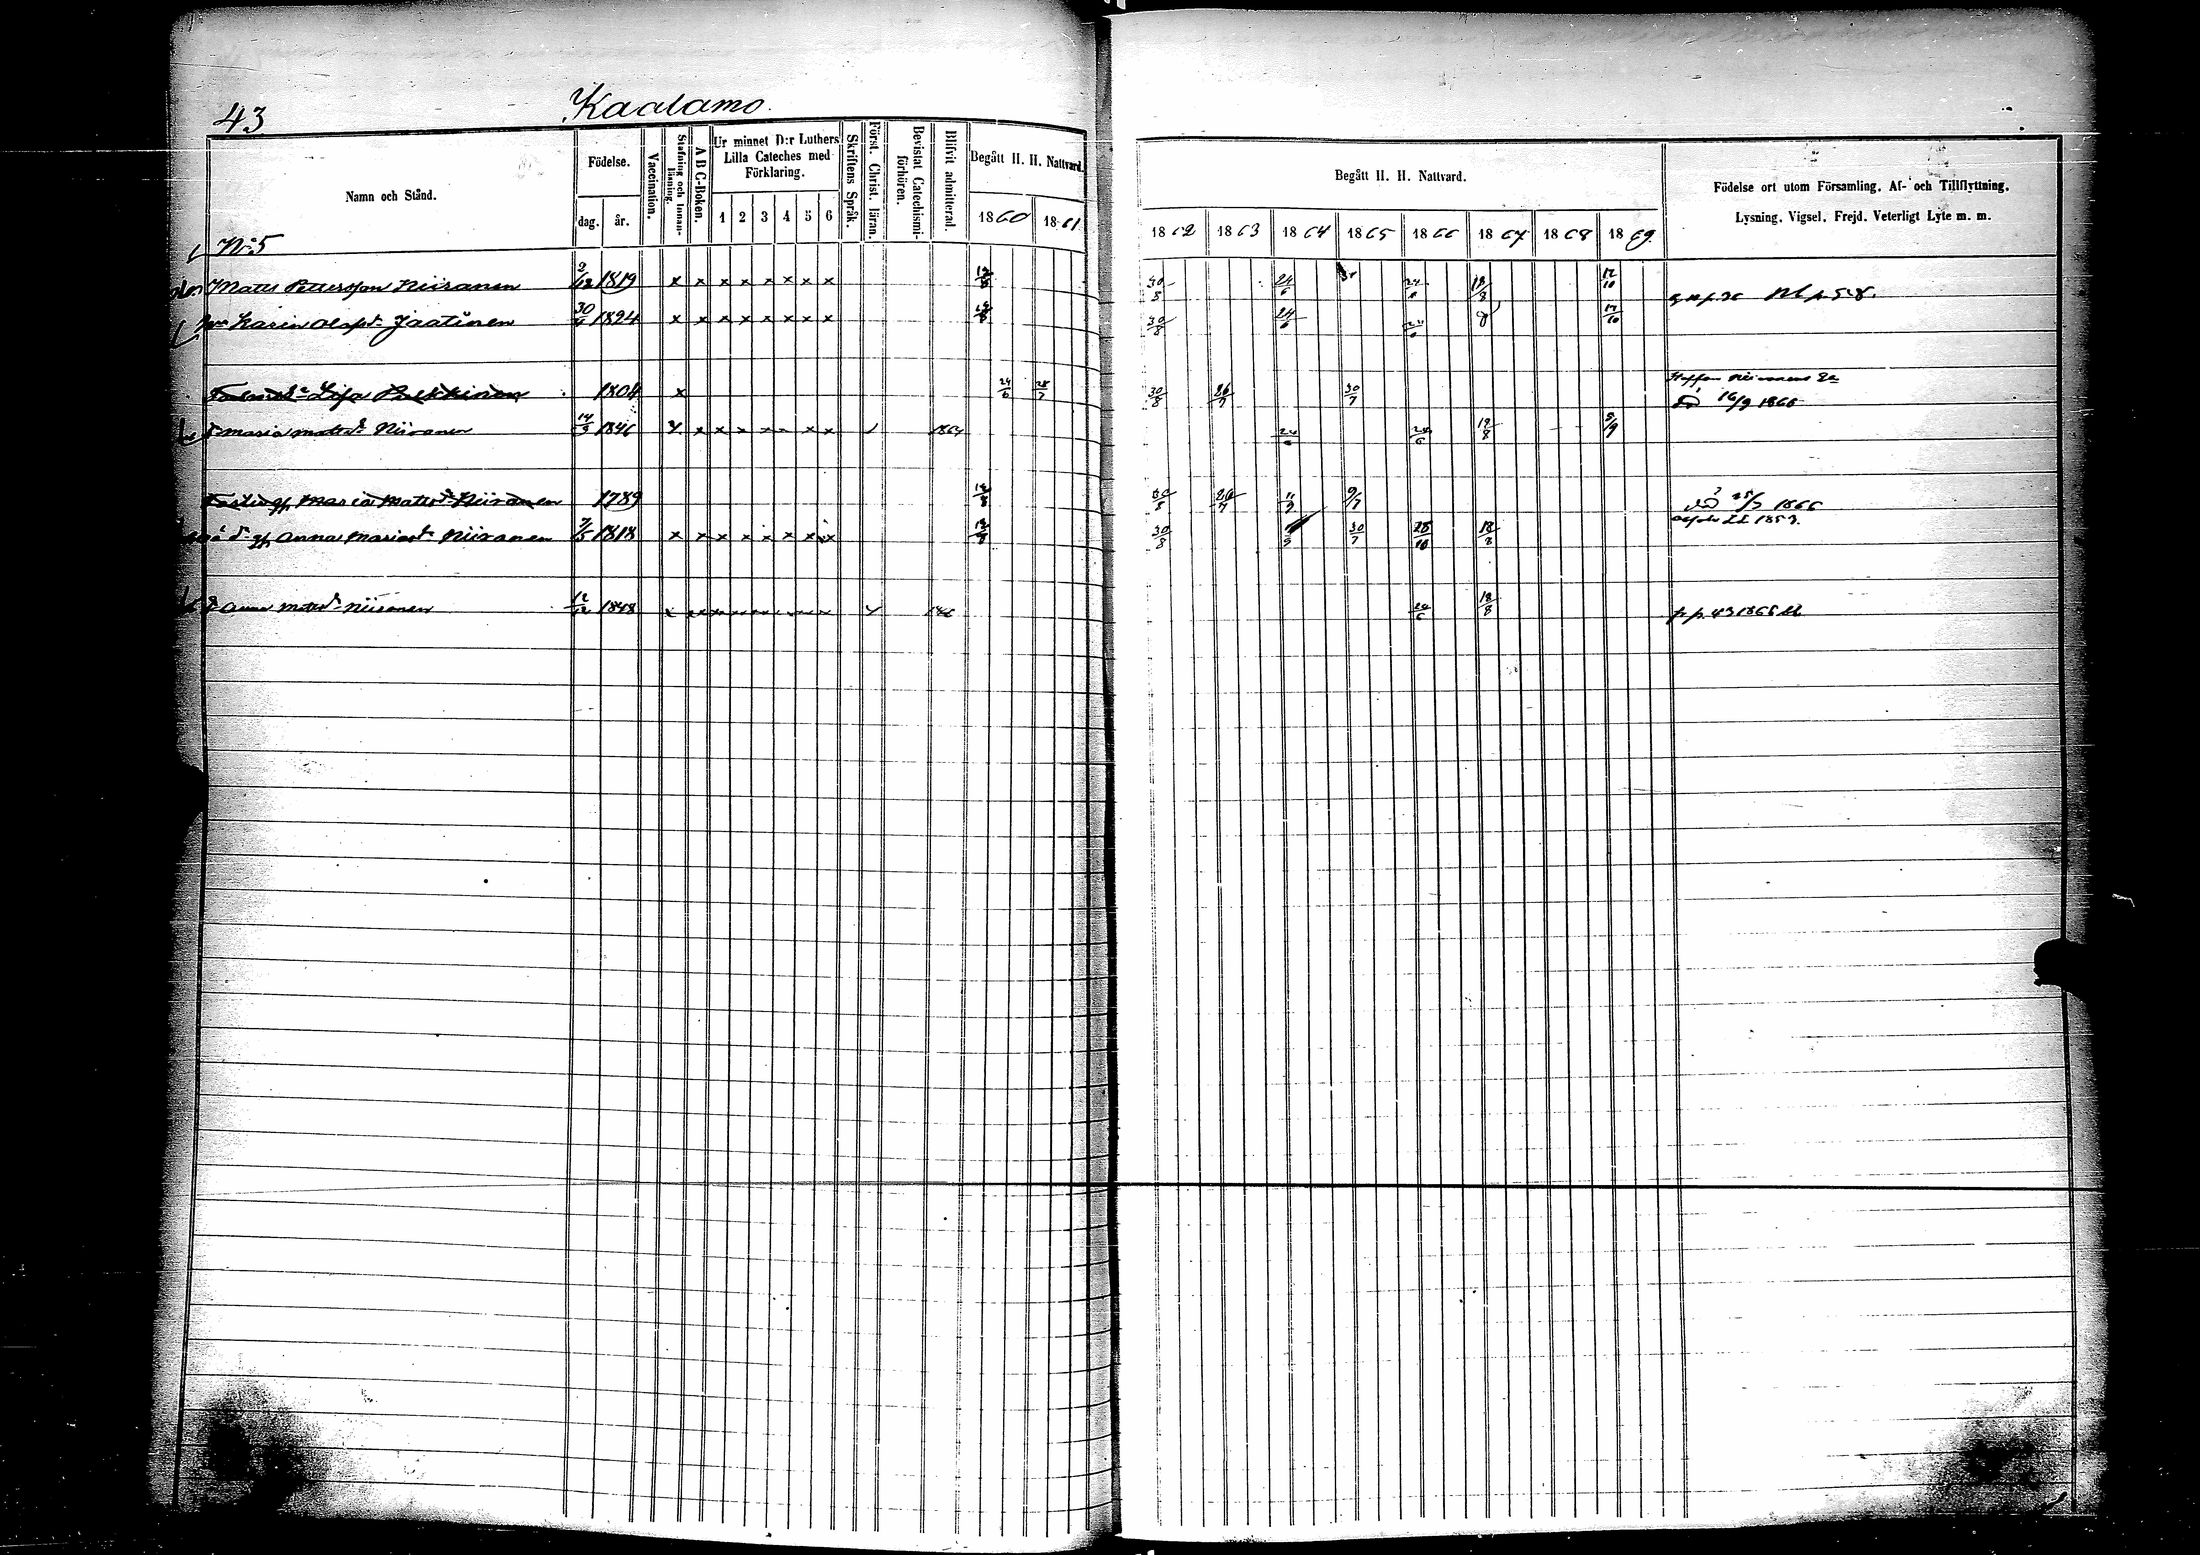 43
Kaalamo
Namn och Stånd.
Födelse.
dag. år.
Vaccination.
Stafning och Innanläsning.
A B C-Boken.
Ur minnet D:r Luthers Lilla Cateches med Förklaring.
1 2 3 4 5 6
Skriftens Språk.
Först. Christ. läran.
Bevistat Catechismiförhören.
Blifvit admitterad.
Begått H. H. Nattvard.
1860 1861
Begått H. H. Nattvard.
1862 1863 1864 1865 1866 1867 1868 1869
Födelse ort utom Församling. Af- och Tillflyttning.
Lysning. Vigsel. Frejd. Veterligt Lyte m. m.
No 5
Matts Pettersson Niiranen 2/12 1819 x x x x x x x x 30/8 24/6 24/6 18/8 17/10
Karin Olofsdr Jaatinen 30/4 1824 x x x x x x x x 30/8 24/6 24/6 17/10
Lisa Pulkkinen 1804 x 24/6 28/7 30/8 26/7 30/7 Död 16/9 1866
dr Maria Mattsdr Niiranen 14/9 1846 x x x x x x x 1864 24/6 24/6 18/8 5/9
Maria Mattsdr Niiranen 1789 30/8 26/7 9/7 Död 25/3 1866
Anna Mariasdr Niiranen 7/5 1818 x x x x x x x x 30/8 30/7 28/10 18/8
dr Anna Mattsdr Niiranen 12/12 1848 x x x x x x x x 24/6 18/8 fr p. 43 1866